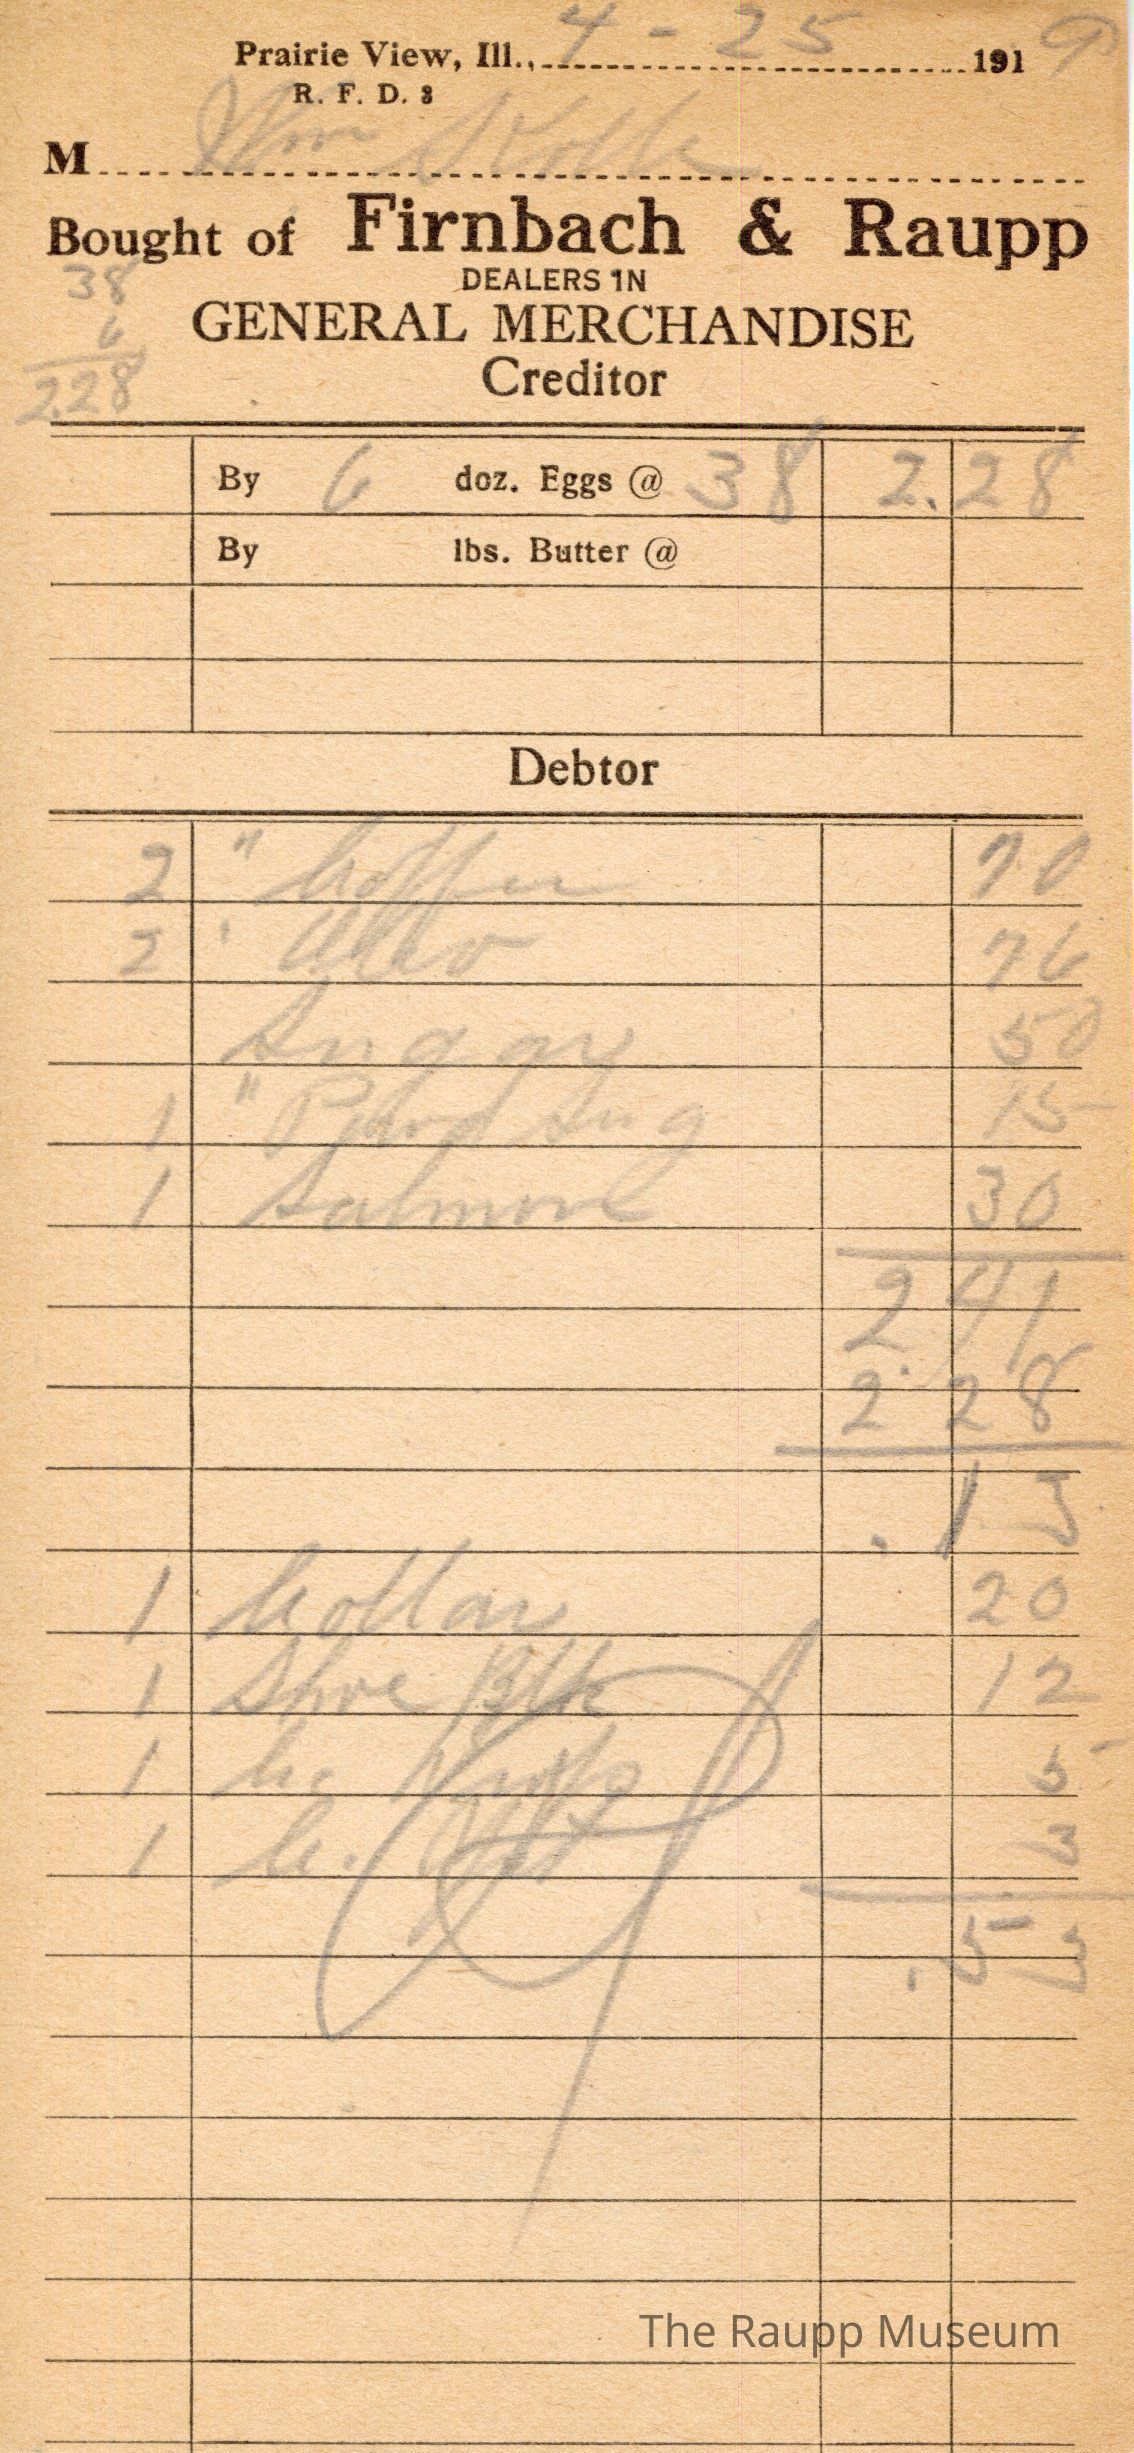 Prairie View, Ill., 4 - 25 1919
R. F. D. 3
M Wm Nolte
Bought of Firnbach & Raupp
DEALERS IN
GENERAL MERCHANDISE
Creditor
38
6
2.28
By 6 doz. Eggs @ 38 2.28
By lbs. Butter @
Debtor
2 " Coffee 70
2 " 76
Sugar 50
1 " Pwd Sug 15
1 Salmon 30
2 41
2 28
.13
1 Collar 20
1 Shoe Blk 12
1 C. 5
1 C. 3
.53
The Raupp Museum